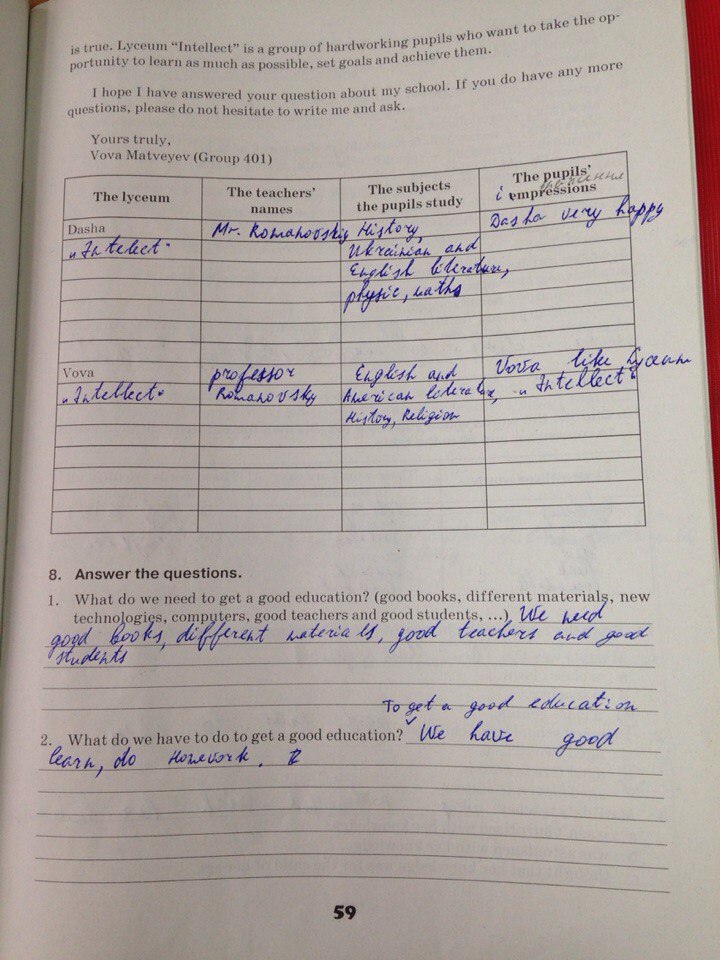 is true. Lyceum “Intellect” is a group of hardworking pupils who want to take the op-
portunity to learn as much as possible, set goals and achieve them.
I hope I have answered your question about my school. If you do have any more
questions, please do not hesitate to write me and ask.
Yours truly,
Vova Matveyev (Group 401)
The lyceum
The teachers’
names
The subjects
the pupils study
The pupils’
i empressions
Dasha
„Intelect“
Mr. Romanovskiy
History,
Ukrainian and
English literature,
physic, maths
Dasha very happy
Vova
„Intellect“
professor
Romanovsky
English and
American literature,
History, Religion
Vova like Lyceum
„Intellect“
8. Answer the questions.
1. What do we need to get a good education? (good books, different materials, new
technologies, computers, good teachers and good students, ...) We need
good books, different materials, good teachers and good
students
To get a good education
2. What do we have to do to get a good education? We have good
learn, do homework.
59